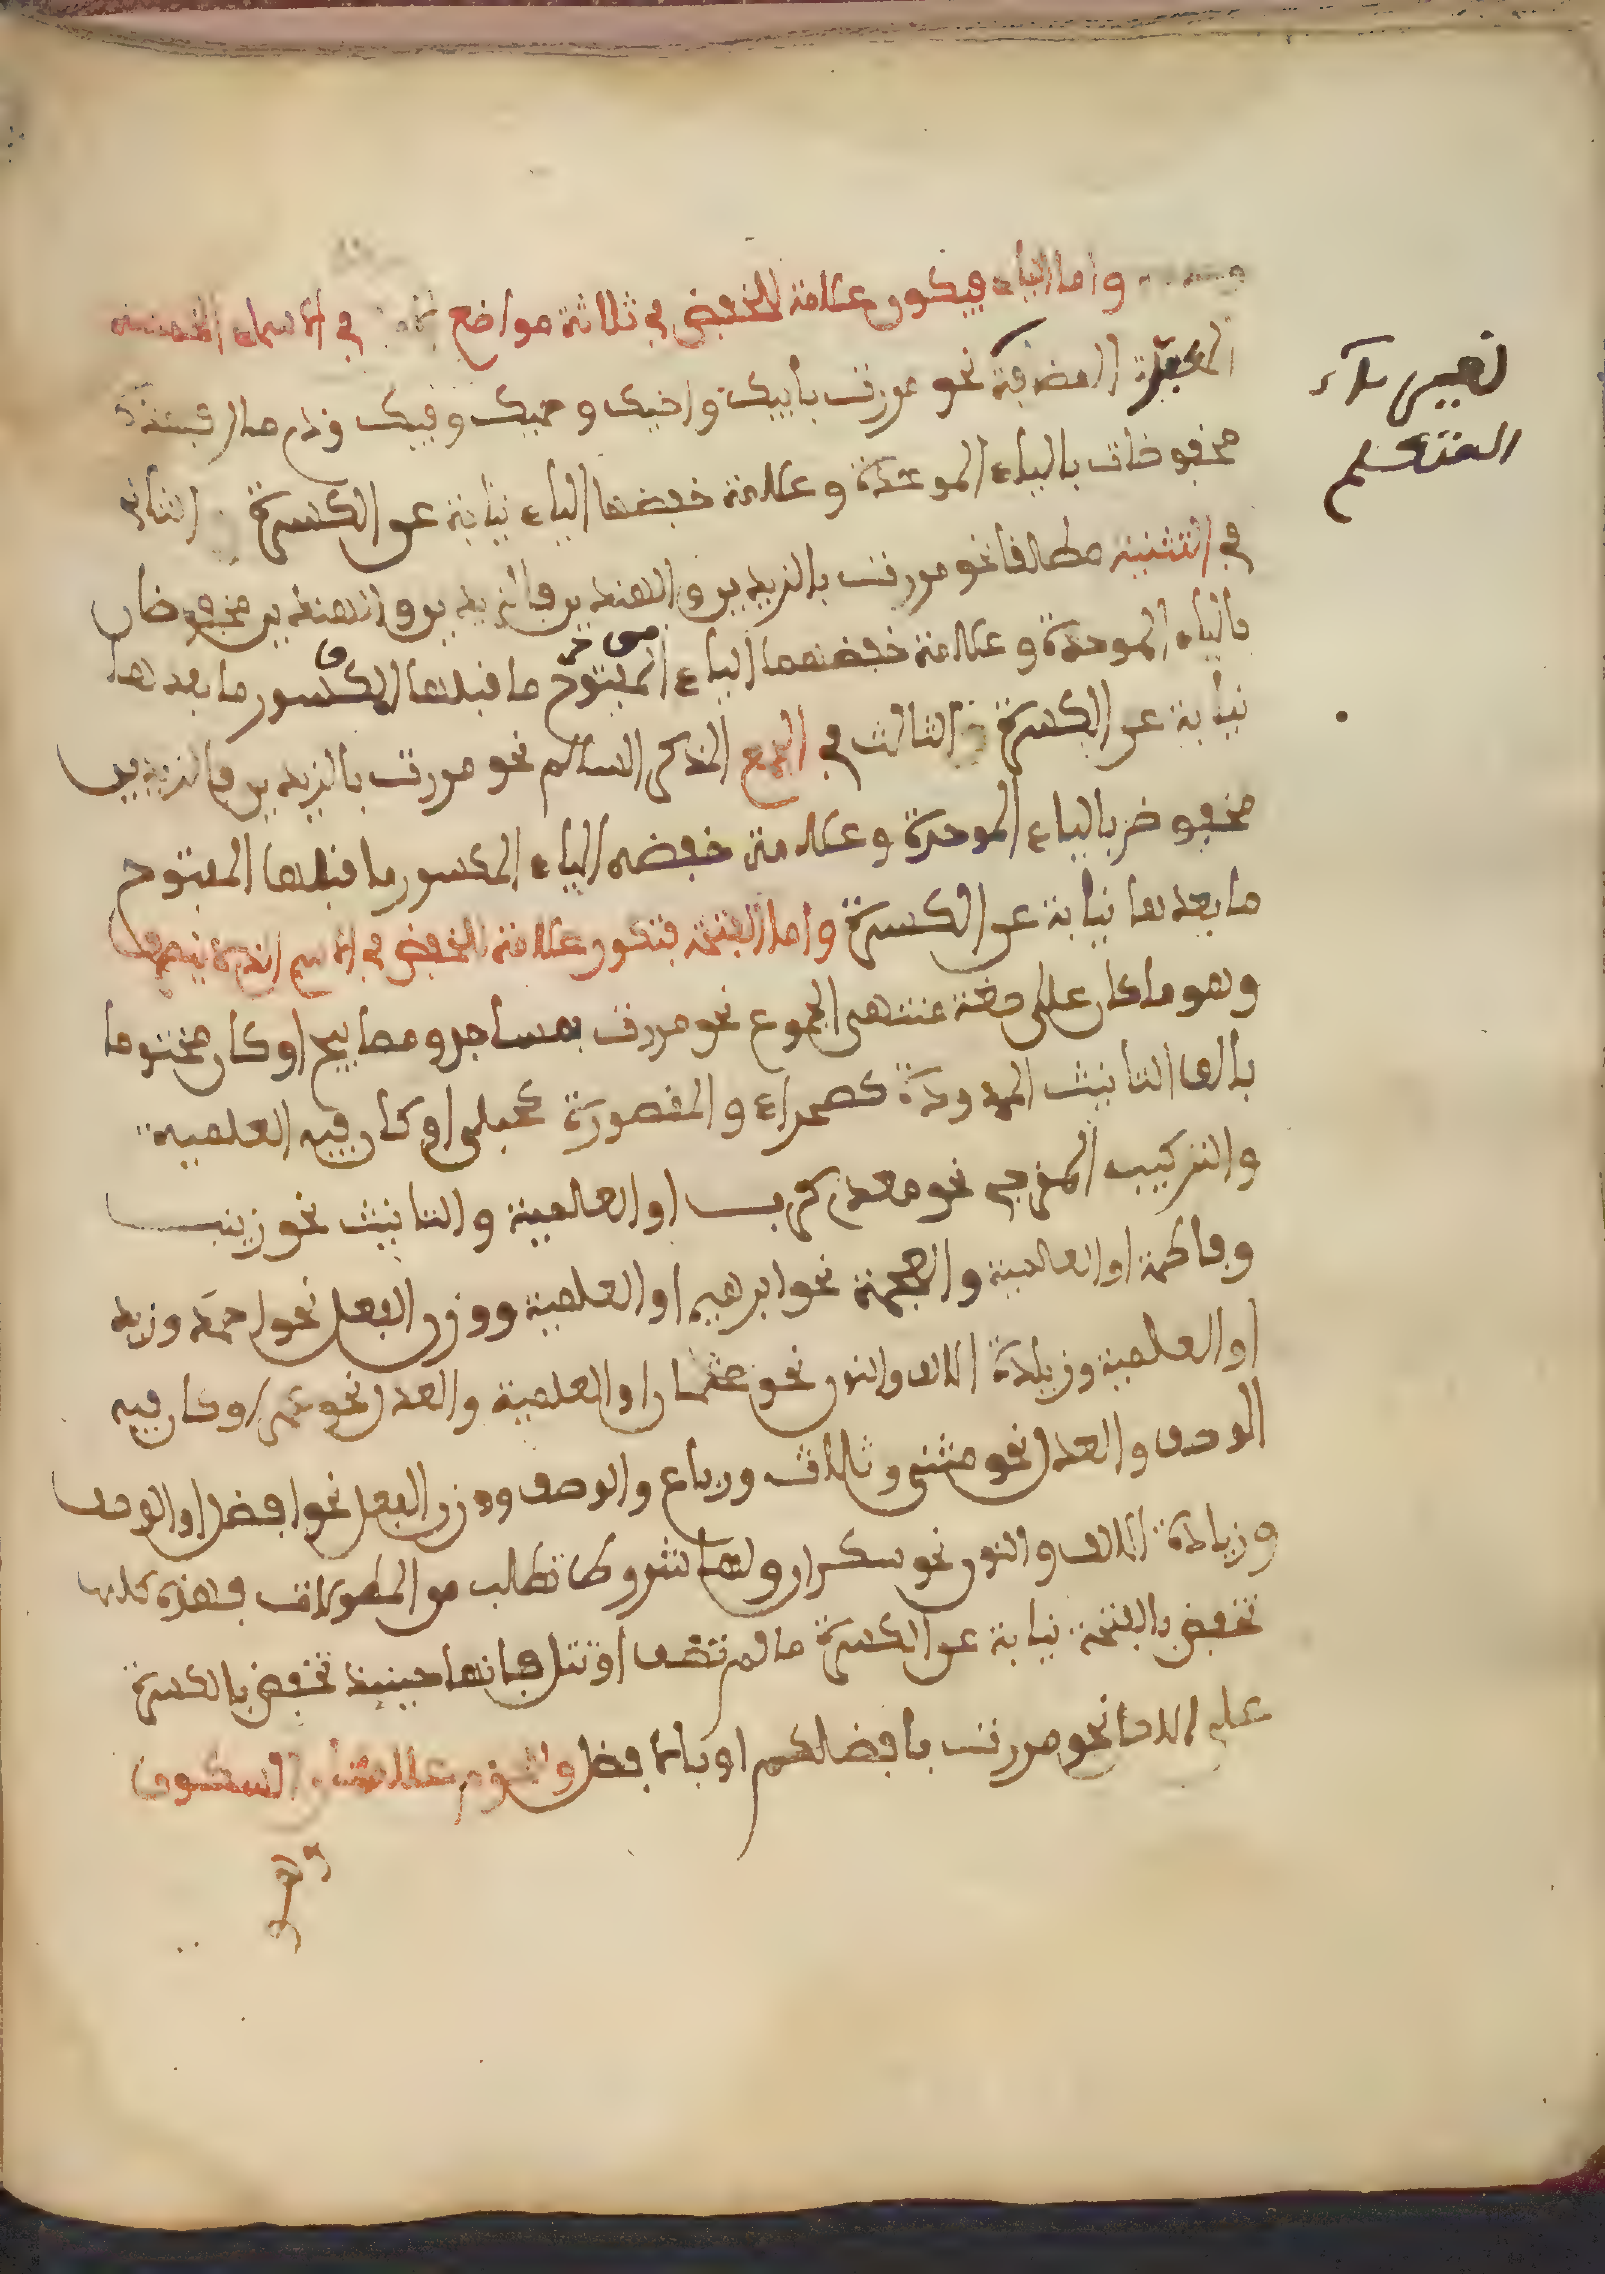 واما الياء فيكون علامة للخفض في ثلاثة مواضع في الاسماء الخمسة
المعتلة المضافة نحو مررت بابيك واخيك وحميك وفيك وذي مال
مخفوضات بالباء الموحدة وعلامة خفضها الياء نيابة عن الكسرة والثاني
في التثنية مطلقا نحو مررت بالزيدين والهندين فالزيدين والهندين مخفوضان
بالباء الموحدة وعلامة خفضهما الياء المفتوح ما قبلها المكسور ما بعدها
نيابة عن الكسرة والثالث في الجمع المذكر السالم نحو مررت بالزيدين فالزيدين
مخفوض بالباء الموحدة وعلامة خفضه الياء المكسور ما قبلها المفتوح
ما بعدها نيابة عن الكسرة واما الفتحة فتكون علامة للخفض في الاسم الذي لا ينصرف
وهو ما كان على صيغة منتهى الجموع نحو مررت بمساجد ومصابيح او كان مختوما
بالف التانيث الممدودة كصحراء والمقصورة كحبلى او كان فيه العلمية
والتركيب المزجي نحو معدي كرب او العلمية والتانيث نحو زينب
وفاطمة او العلمية والعجمة نحو ابرهيم او العلمية ووزن الفعل نحو احمد وزيد
او العلمية وزيادة الالف والنون نحو عثمان او العلمية والعدل نحو عمر او كان فيه
الوصف والعدل نحو مثنى وثلاث ورباع والوصف ووزن الفعل نحو افضل او الوصف
وزيادة الالف والنون نحو سكران ولها شروط تطلب من المطولات فهذه كلها
تخفض بالفتحة نيابة عن الكسرة ما لم تضف او تتل فانها حينئذ تخفض بالكسرة
على الاصل نحو مررت بافضلكم او بالافضل وللجزم علامتان السكون
المتكلم